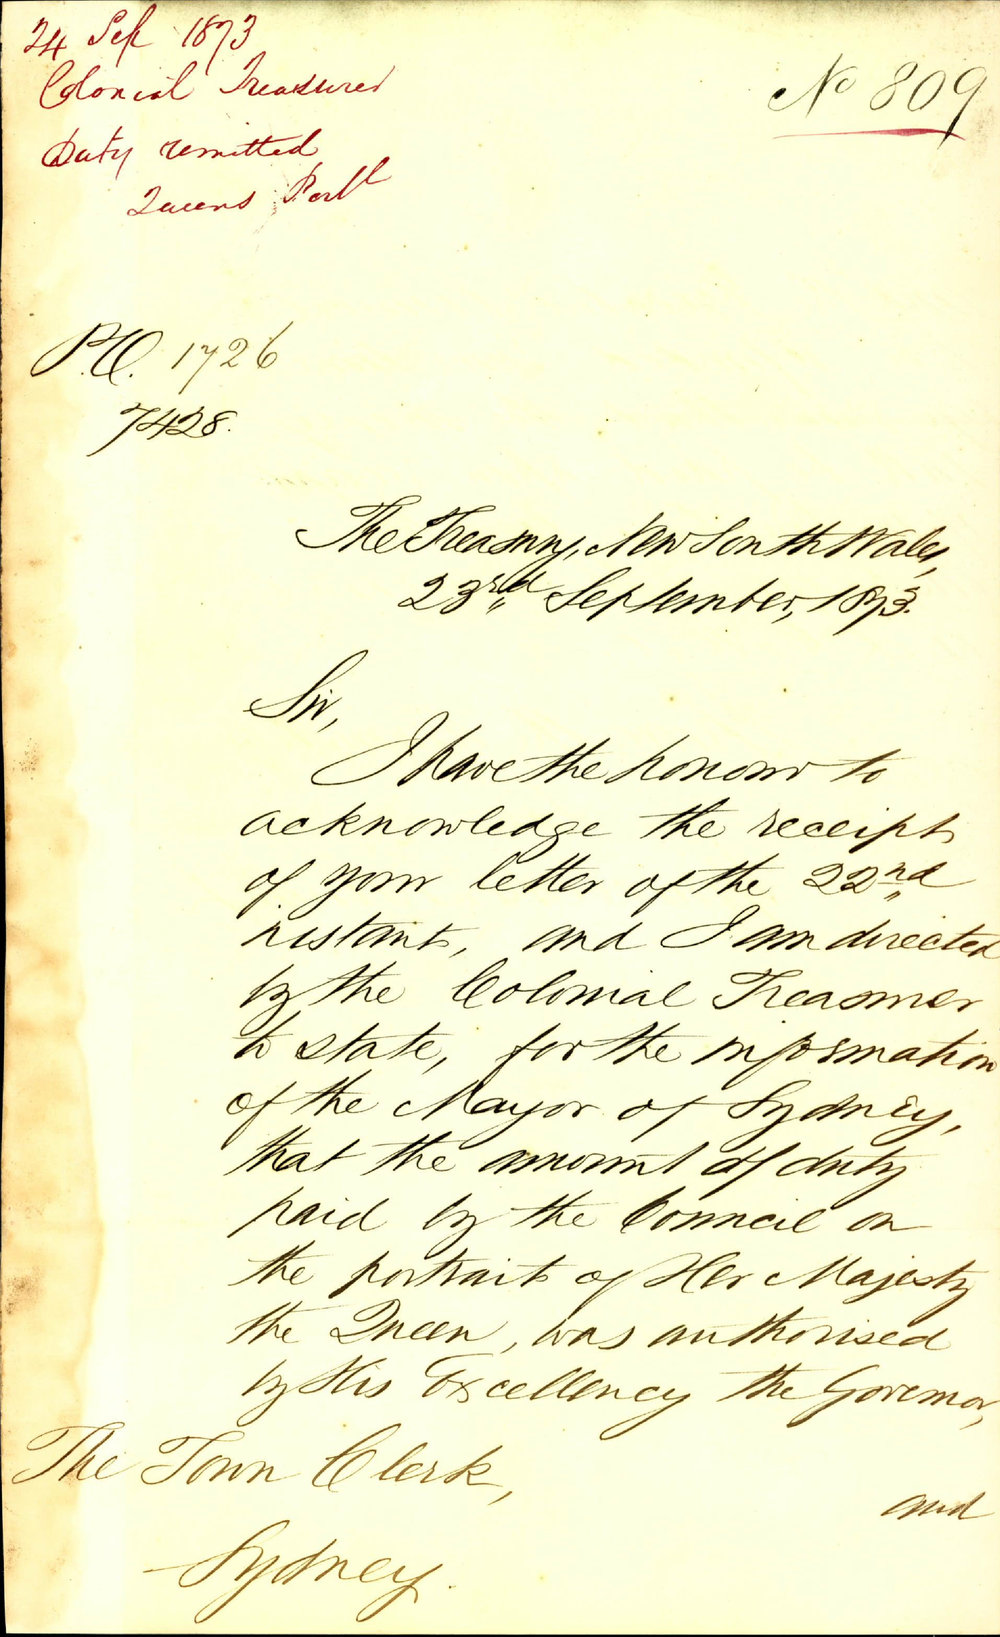 24 Sep 1873
Colonial Treasurer
Duty remitted
Queens Portt
No 809
P.O. 1726
7428.
The Treasury, New South Wales,
23rd September, 1873.
Sir,
I have the honour to
acknowledge the receipt
of your letter of the 22nd
instant, and I am directed
by the Colonial Treasurer
to state, for the information
of the Mayor of Sydney,
that the amount of duty
paid by the Council on
the portrait of Her Majesty
the Queen, was authorised
by His Excellency the Governor,
and
The Town Clerk,
Sydney.